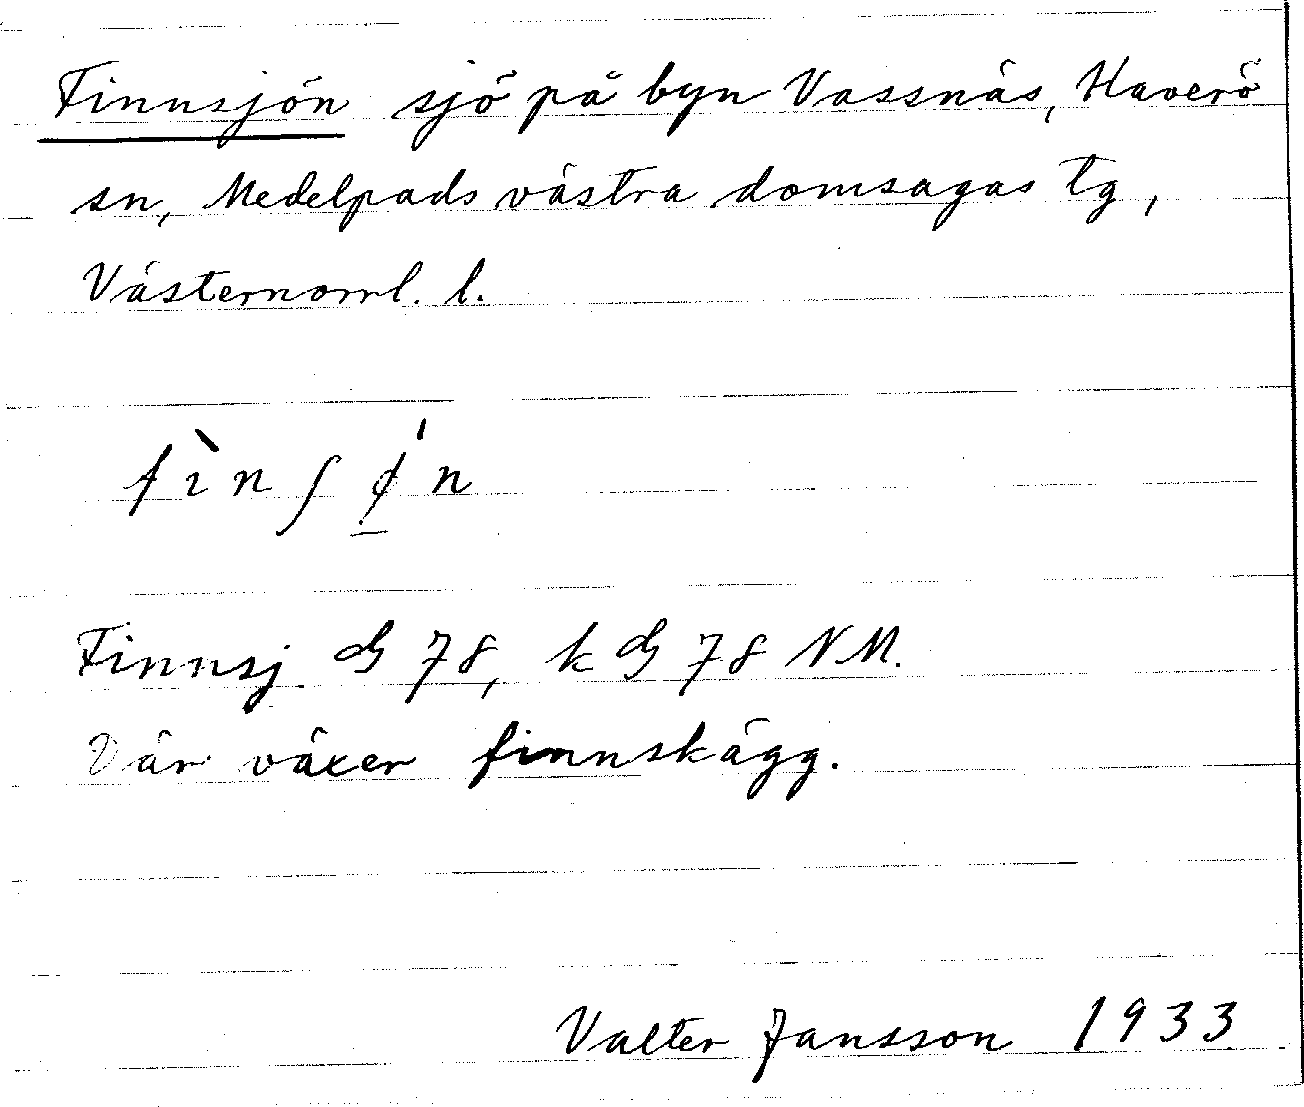 Finnsjön sjö på byn Vassnäs, Haverö
sn, Medelpads västra domsagas tg,
Västernorrl. l.
fìnʃǿ̲n
Finnsj. G 78, k G 78 NM.
Där växer finnskägg.
Valter Jansson 1933